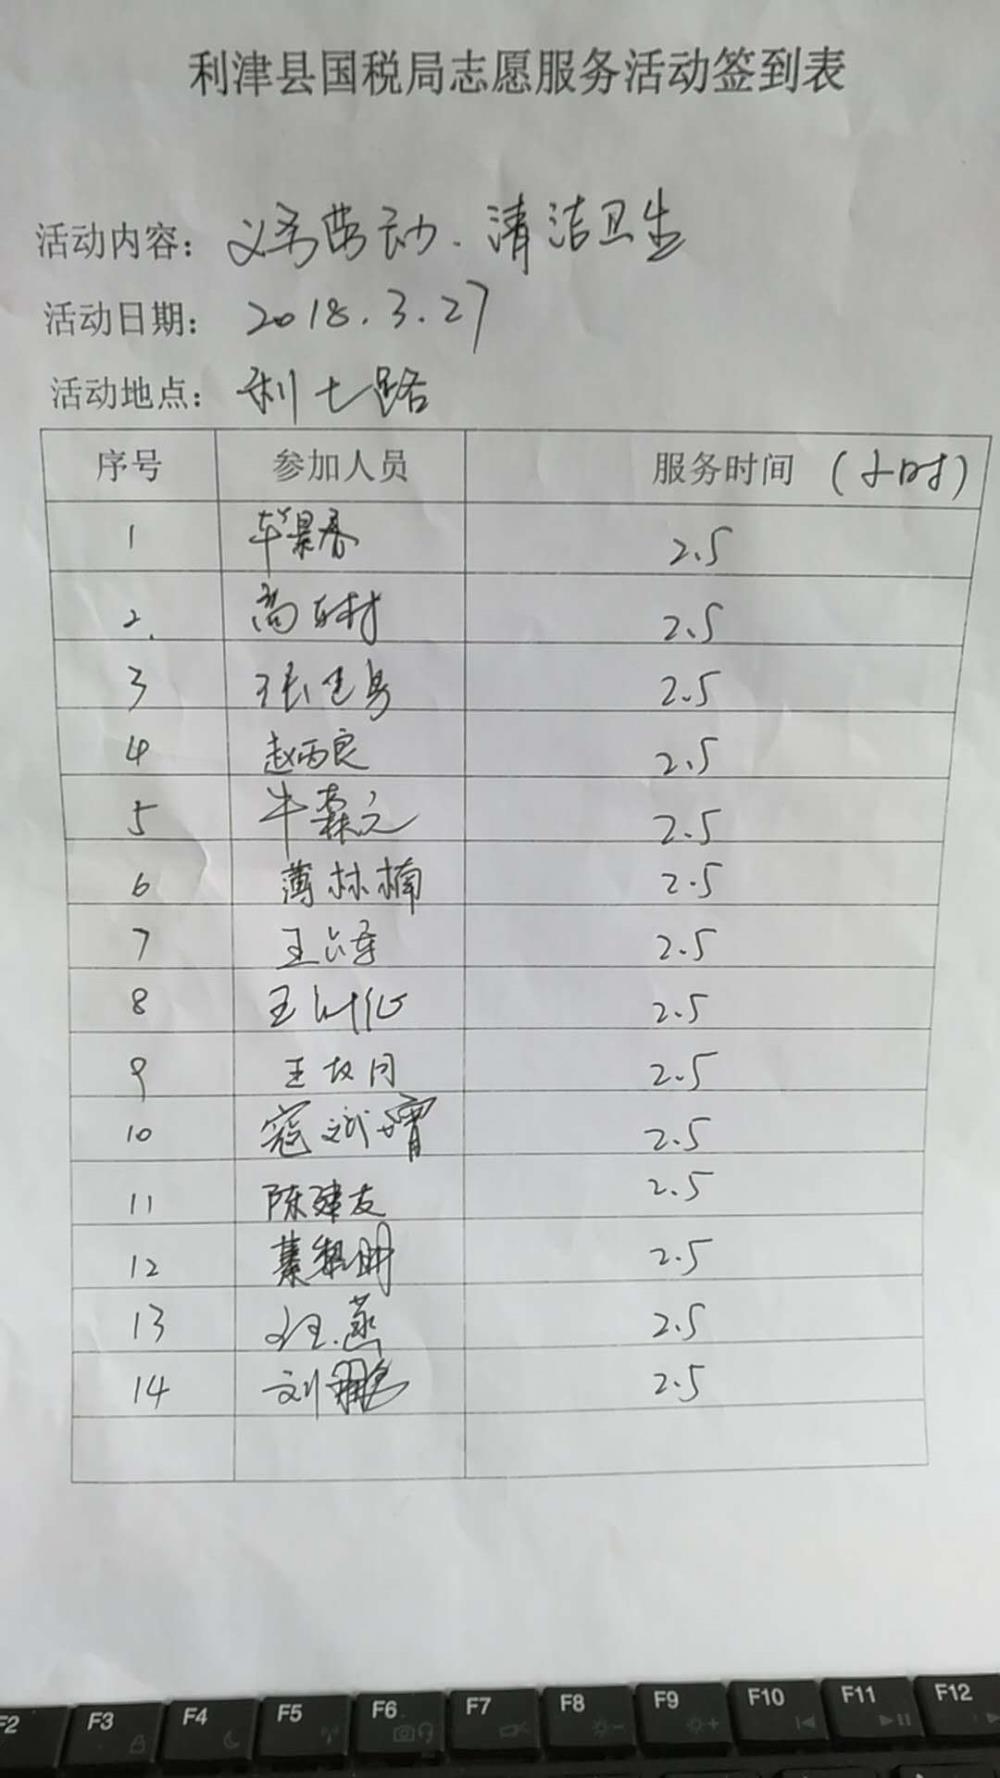 利津县国税局志愿服务活动签到表
活动内容：义务劳动．清洁卫生
活动日期：2018.3.27
活动地点：利七路
序号 参加人员 服务时间（小时）
1 毕景春 2.5
2. 高 村 2.5
3 张 2.5
4 赵丙良 2.5
5 牛森元 2.5
6 薄林楠 2.5
7 王 2.5
8 王 2.5
9 王 月 2.5
10 寇 2.5
11 陈建友 2.5
12 綦黎明 2.5
13 燕 2.5
14 刘鹏 2.5
F2 F3 F4 F5 F6 F7 F8 F9 F10 F11 F12